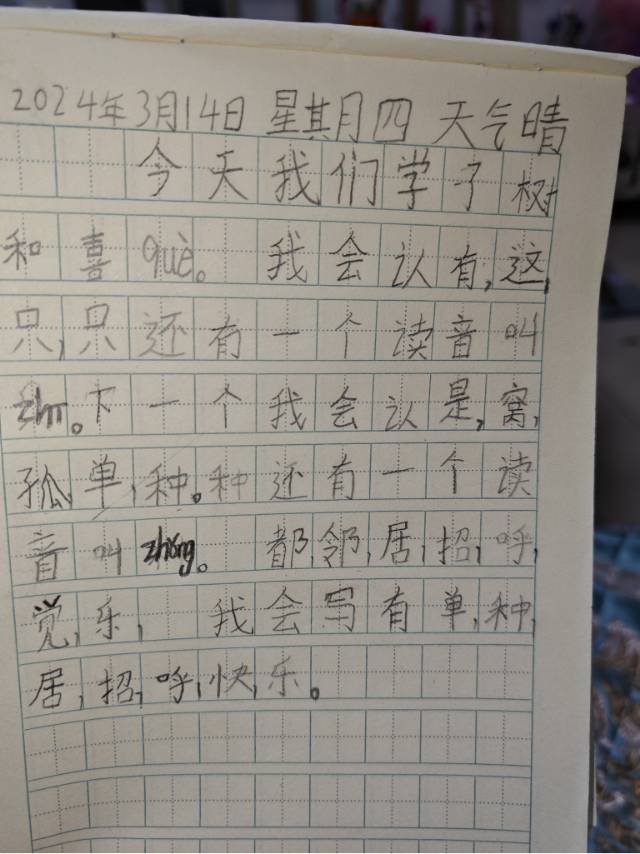 2024年3月14日 星期四 天气晴
今天我们学了树
和喜què。 我会认有,这,
只,只还有一个读音叫
zhī。下一个我会认是,窝,
孤,单,种。种还有一个读
音叫zhòng。 都,邻,居,招,呼,
觉,乐, 我会写有单,种,
居,招,呼,快,乐。